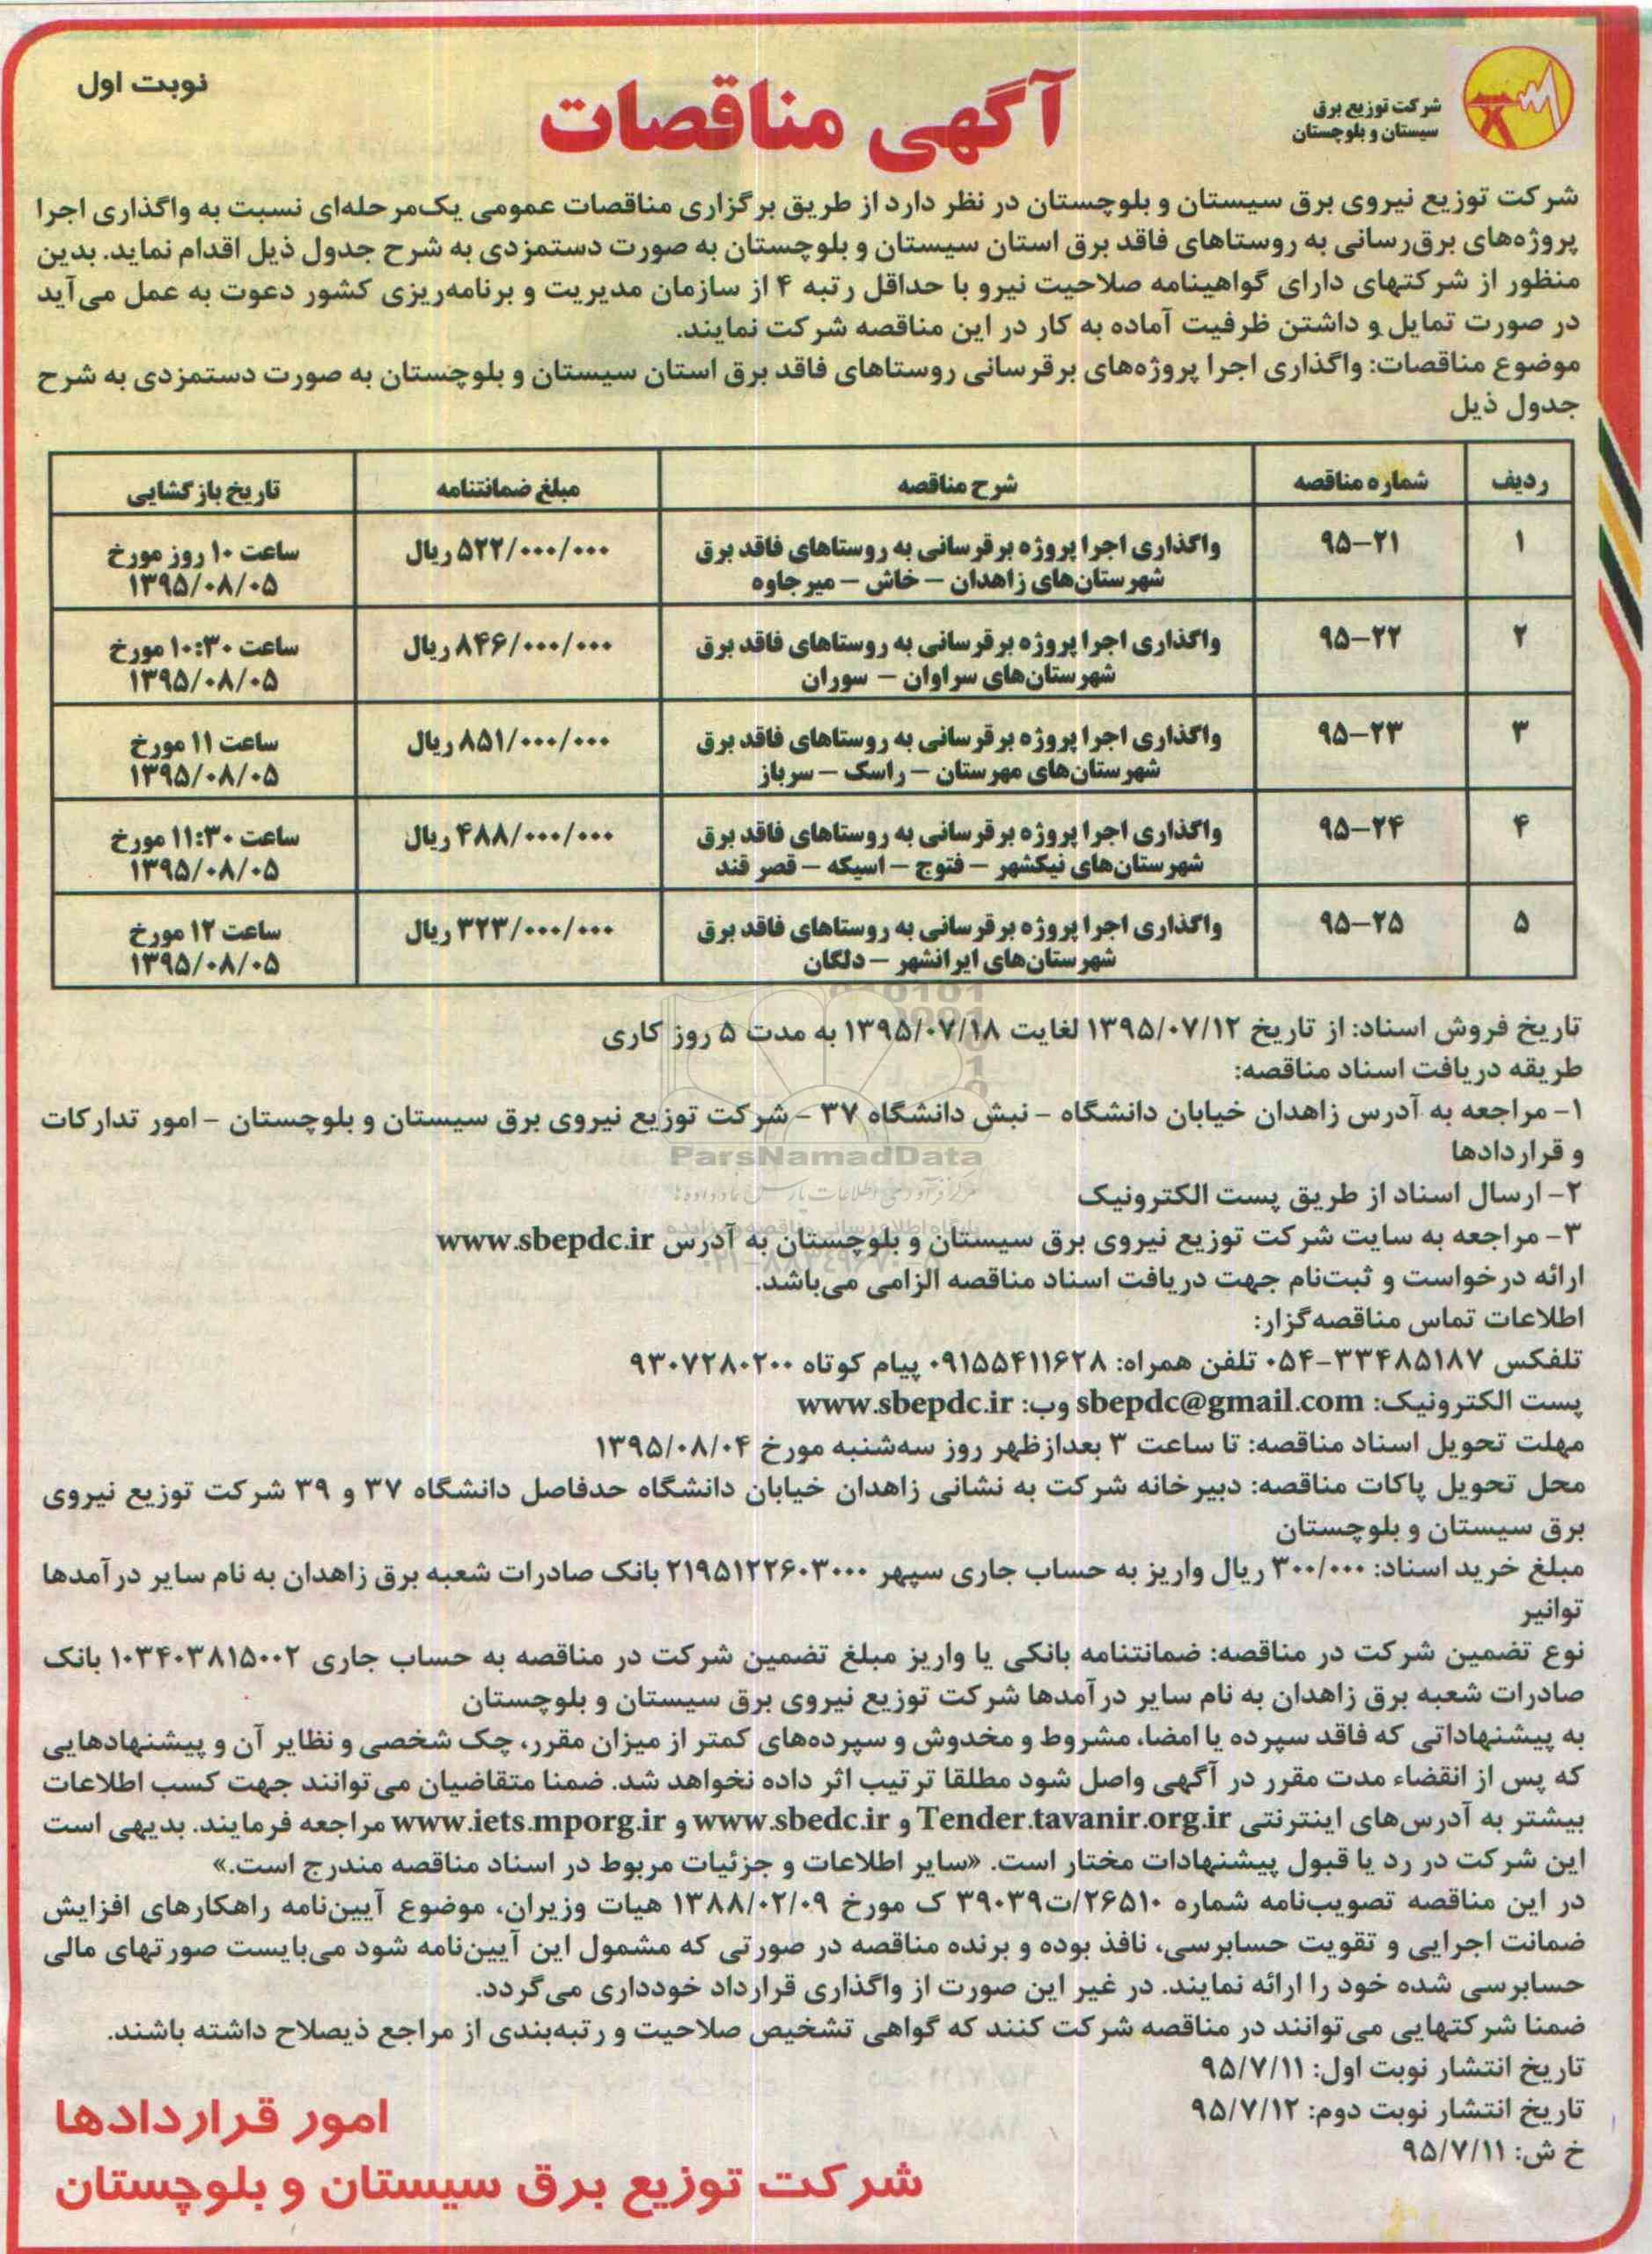 شرکت توزیع برق
سیستان و بلوچستان
آگهی مناقصات
نوبت اول
شرکت توزیع نیروی برق سیستان و بلوچستان در نظر دارد از طریق برگزاری مناقصات عمومی یک‌مرحله‌ای نسبت به واگذاری اجرا
پروژه‌های برق‌رسانی به روستاهای فاقد برق استان سیستان و بلوچستان به صورت دستمزدی به شرح جدول ذیل اقدام نماید. بدین
منظور از شرکتهای دارای گواهینامه صلاحیت نیرو با حداقل رتبه ۴ از سازمان مدیریت و برنامه‌ریزی کشور دعوت به عمل می‌آید
در صورت تمایل و داشتن ظرفیت آماده به کار در این مناقصه شرکت نمایند.
موضوع مناقصات: واگذاری اجرا پروژه‌های برقرسانی روستاهای فاقد برق استان سیستان و بلوچستان به صورت دستمزدی به شرح
جدول ذیل
ردیف شماره مناقصه شرح مناقصه مبلغ ضمانتنامه تاریخ بازگشایی
۱ ۹۵-۲۱ واگذاری اجرا پروژه برقرسانی به روستاهای فاقد برق ۵۲۲/۰۰۰/۰۰۰ ریال ساعت ۱۰ روز مورخ
شهرستان‌های زاهدان – خاش – میرجاوه ۱۳۹۵/۰۸/۰۵
۲ ۹۵-۲۲ واگذاری اجرا پروژه برقرسانی به روستاهای فاقد برق ۸۴۶/۰۰۰/۰۰۰ ریال ساعت ۱۰:۳۰ مورخ
شهرستان‌های سراوان – سوران ۱۳۹۵/۰۸/۰۵
۳ ۹۵-۲۳ واگذاری اجرا پروژه برقرسانی به روستاهای فاقد برق ۸۵۱/۰۰۰/۰۰۰ ریال ساعت ۱۱ مورخ
شهرستان‌های مهرستان – راسک – سرباز ۱۳۹۵/۰۸/۰۵
۴ ۹۵-۲۴ واگذاری اجرا پروژه برقرسانی به روستاهای فاقد برق ۴۸۸/۰۰۰/۰۰۰ ریال ساعت ۱۱:۳۰ مورخ
شهرستان‌های نیکشهر – فتوج – اسیکه – قصر قند ۱۳۹۵/۰۸/۰۵
۵ ۹۵-۲۵ واگذاری اجرا پروژه برقرسانی به روستاهای فاقد برق ۳۲۳/۰۰۰/۰۰۰ ریال ساعت ۱۲ مورخ
شهرستان‌های ایرانشهر – دلگان ۱۳۹۵/۰۸/۰۵
تاریخ فروش اسناد: از تاریخ ۱۳۹۵/۰۷/۱۲ لغایت ۱۳۹۵/۰۷/۱۸ به مدت ۵ روز کاری
طریقه دریافت اسناد مناقصه:
۱- مراجعه به آدرس زاهدان خیابان دانشگاه - نبش دانشگاه ۳۷ - شرکت توزیع نیروی برق سیستان و بلوچستان - امور تدارکات
و قراردادها
ParsNamadData
۲- ارسال اسناد از طریق پست الکترونیک
۳- مراجعه به سایت شرکت توزیع نیروی برق سیستان و بلوچستان به آدرس www.sbepdc.ir
ارائه درخواست و ثبت‌نام جهت دریافت اسناد مناقصه الزامی می‌باشد.
اطلاعات تماس مناقصه‌گزار:
تلفکس ۳۳۴۸۵۱۸۷-۰۵۴ تلفن همراه: ۰۹۱۵۵۴۱۱۶۲۸ پیام کوتاه ۹۳۰۷۲۸۰۲۰۰
پست الکترونیک: sbepdc@gmail.com وب: www.sbepdc.ir
مهلت تحویل اسناد مناقصه: تا ساعت ۳ بعدازظهر روز سه‌شنبه مورخ ۱۳۹۵/۰۸/۰۴
محل تحویل پاکات مناقصه: دبیرخانه شرکت به نشانی زاهدان خیابان دانشگاه حدفاصل دانشگاه ۳۷ و ۳۹ شرکت توزیع نیروی
برق سیستان و بلوچستان
مبلغ خرید اسناد: ۳۰۰/۰۰۰ ریال واریز به حساب جاری سپهر ۲۱۹۵۱۲۲۶۰۳۰۰۰ بانک صادرات شعبه برق زاهدان به نام سایر درآمدها
توانیر
نوع تضمین شرکت در مناقصه: ضمانتنامه بانکی یا واریز مبلغ تضمین شرکت در مناقصه به حساب جاری ۱۰۳۴۰۳۸۱۵۰۰۲ بانک
صادرات شعبه برق زاهدان به نام سایر درآمدها شرکت توزیع نیروی برق سیستان و بلوچستان
به پیشنهاداتی که فاقد سپرده یا امضا، مشروط و مخدوش و سپرده‌های کمتر از میزان مقرر، چک شخصی و نظایر آن و پیشنهادهایی
که پس از انقضاء مدت مقرر در آگهی واصل شود مطلقا ترتیب اثر داده نخواهد شد. ضمنا متقاضیان می‌توانند جهت کسب اطلاعات
بیشتر به آدرس‌های اینترنتی Tender.tavanir.org.ir و www.sbedc.ir و www.iets.mporg.ir مراجعه فرمایند. بدیهی است
این شرکت در رد یا قبول پیشنهادات مختار است. «سایر اطلاعات و جزئیات مربوط در اسناد مناقصه مندرج است.»
در این مناقصه تصویب‌نامه شماره ۲۶۵۱۰/ت۳۹۰۳۹ ک مورخ ۱۳۸۸/۰۲/۰۹ هیات وزیران، موضوع آیین‌نامه راهکارهای افزایش
ضمانت اجرایی و تقویت حسابرسی، نافذ بوده و برنده مناقصه در صورتی که مشمول این آیین‌نامه شود می‌بایست صورتهای مالی
حسابرسی شده خود را ارائه نمایند. در غیر این صورت از واگذاری قرارداد خودداری می‌گردد.
ضمنا شرکتهایی می‌توانند در مناقصه شرکت کنند که گواهی تشخیص صلاحیت و رتبه‌بندی از مراجع ذیصلاح داشته باشند.
تاریخ انتشار نوبت اول: ۹۵/۷/۱۱
تاریخ انتشار نوبت دوم: ۹۵/۷/۱۲
خ ش: ۹۵/۷/۱۱
امور قراردادها
شرکت توزیع برق سیستان و بلوچستان